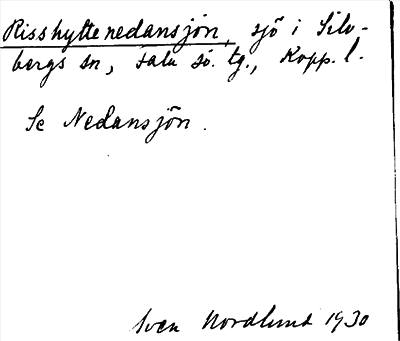 Risshyttenedansjön, sjö i Silv-
bergs sn, Säters sö. tg., Kopp. l.
Se Nedansjön.
Sven Nordlund 1930